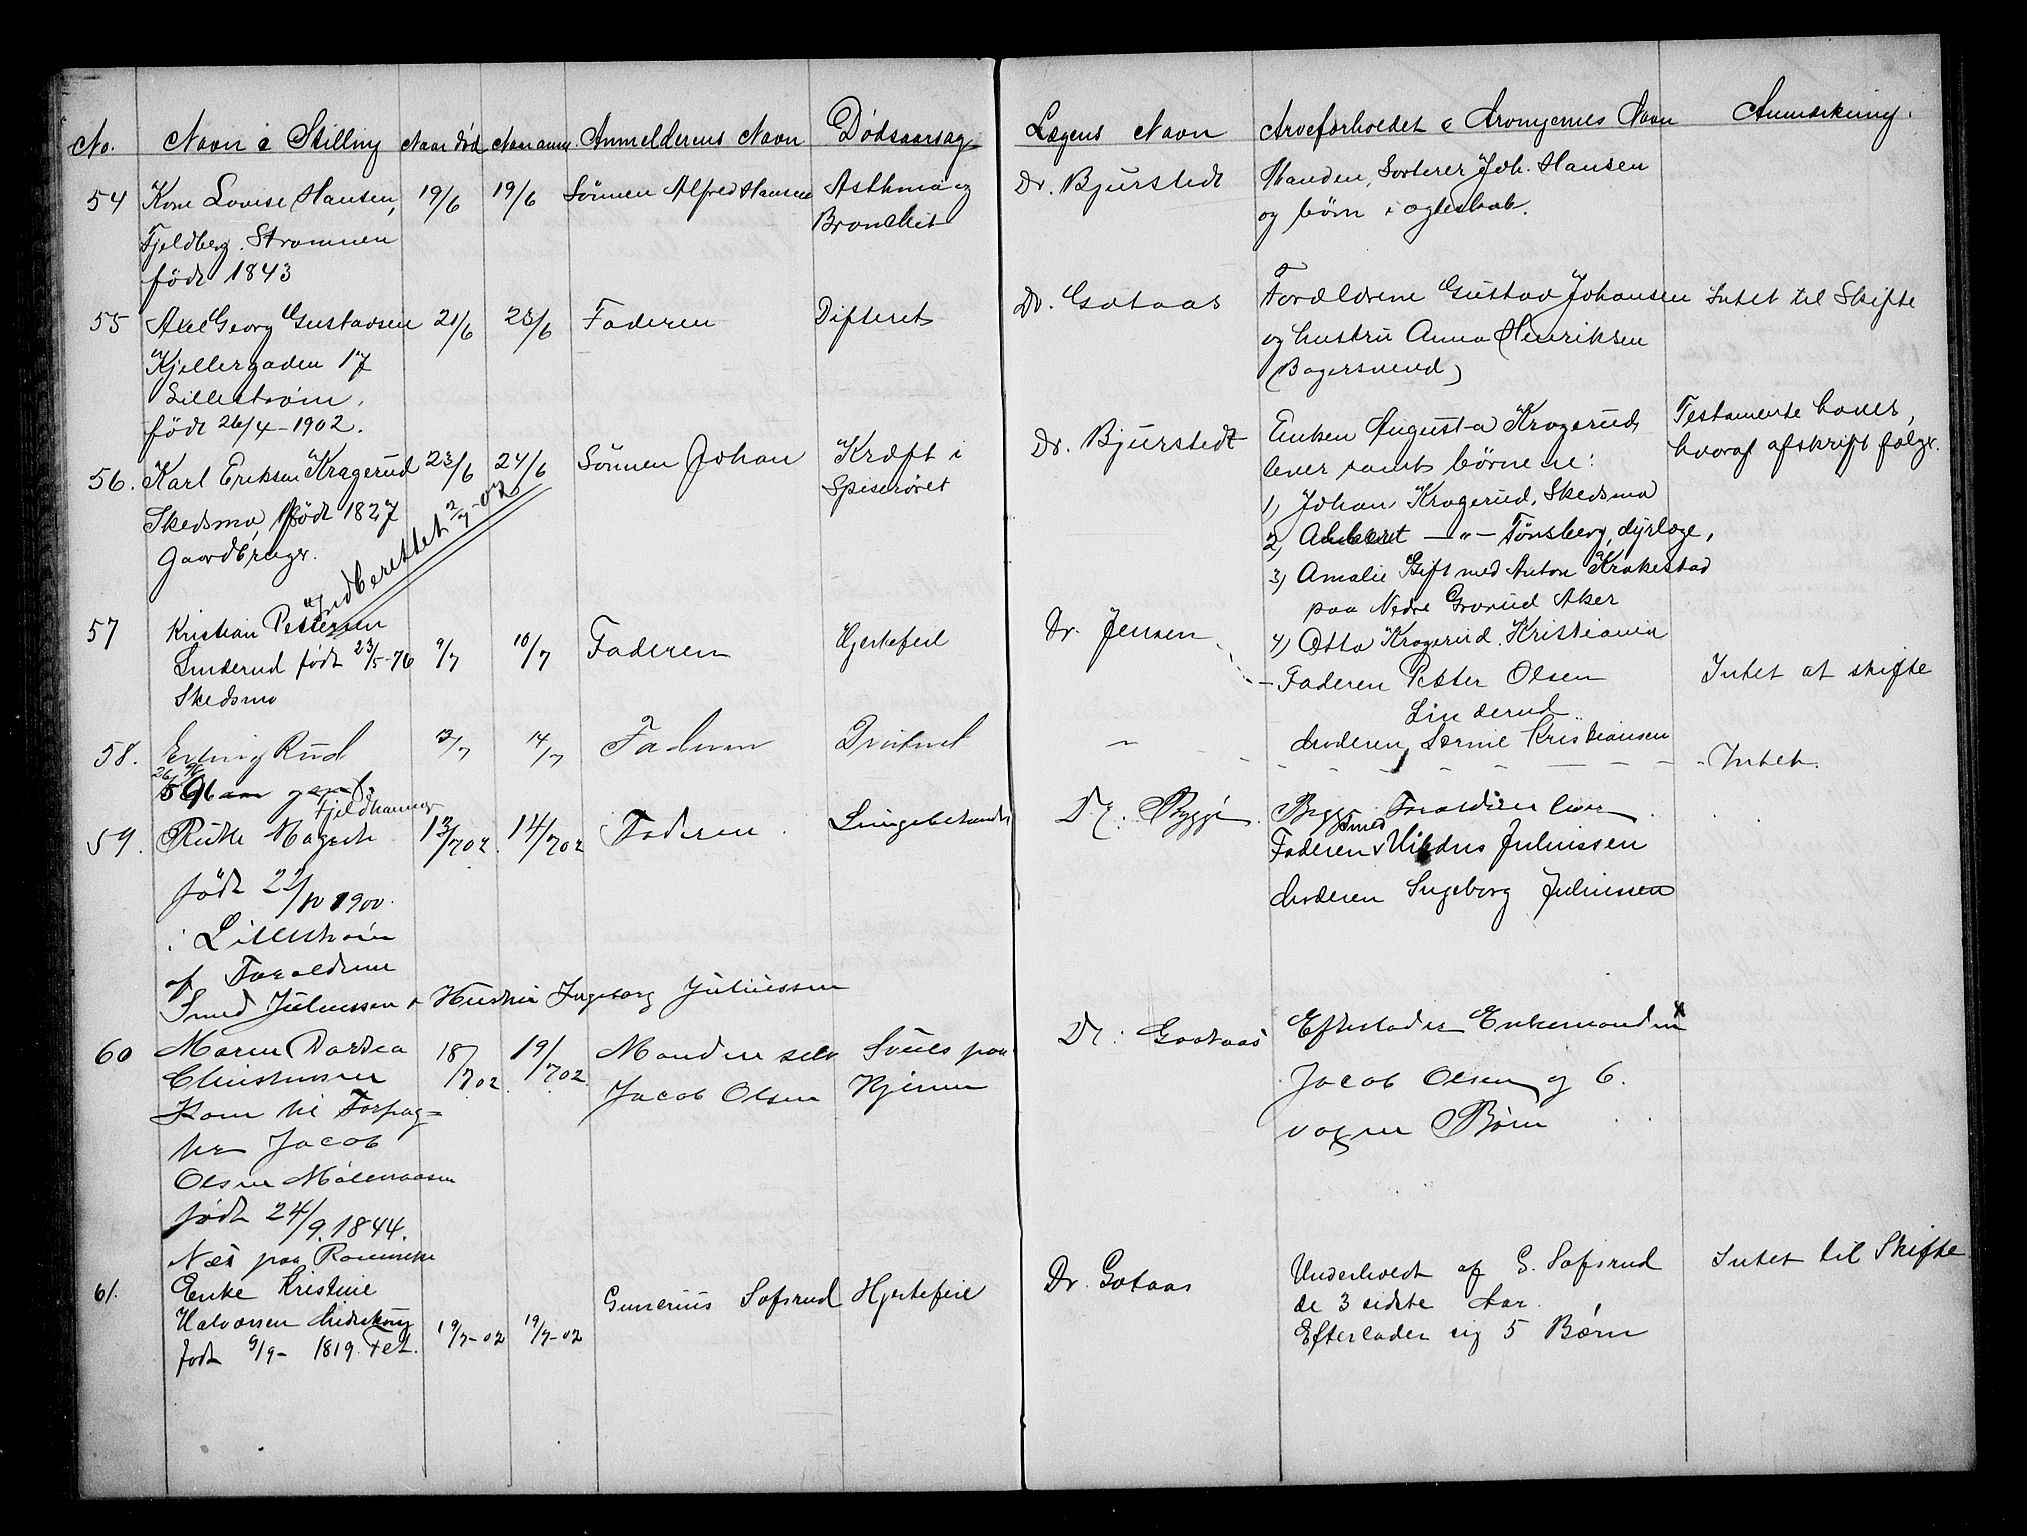 No. Navn & Stilling Naar død Naar anm. Anmelderens Navn Dødsaarsag Lægens Navn Arveforholdet & Arvingernes Navn Anmærkning.
54 Kone Lovise Hansen, 19/6 19/6 Sönnen Alfred Hansen Asthma og Dr. Bjurstedt Manden, Sorterer Joh. Hansen
Fjeldberg. Strømmen Bronchit og börn i ægteskab.
født 1843
55 Axel Georg Gustavsen 21/6 23/6 Faderen Difterit Dr. Gotaas Forældrene Gustav Johansen Intet til Skifte
Kjellergaden 17 og hustru Anna Henriksen
Lillestrøm. (Bagersvend)
født 26/4-1902.
56. Karl Eriksen Kragerud 23/6 24/6 Sönnen Johan Kræft i Dr. Bjurstedt Enken Augusta Kragerud, Testamente haves,
Skedsmo, født 1827 Spiserøret lever samt börnene: hvoraf afskrift følger.
Gaardbruger. 1) Johan Kragerud, Skedsmo
Indberettet 2/7-02 2) -"- Tønsberg, dyrlæge,
3) Amalie Gift med Anton Krakestad
paa Nedre Aker
4) Otto Kragerud. Kristiania
57 Kristian Pettersen 9/7 10/7 Faderen Hjertefeil Dr. Jensen Faderen Petter Olsen Intet at skifte
Linderud født 23/5-76 Linderud
Skedsmo Moderen, Kristiansen
58. Rud 13/7 14/7 Faderen - Intet.
Fjeldhammer
59. Ruth 13/7 02. 14/7 02 Faderen. Lungebetændelse Dr: Bygge. Forældrene lever
født 22/10 1900. Smed
i Lillestrøm Faderen Juliussen
af Forældrene Moderen Ingeborg Juliussen
Smed Juliussen & Hustru Ingeborg Juliussen
60 Maren Dorthea 18/7 02. 19/7 02. Manden selv Svulst paa Dr: Gootaas Efterlader Enkemanden
Christiansen Jacob Olsen Hjernen Jacob Olsen og 6.
Kone til Forpag= voxne Børn
ter Jacob
Olsen
født 24/9. 1844.
Næs paa Romerike
61. Enke Kristine Gunerius Sofsrud Hjertefeil Dr. Gotaas Underholdt af G. Sofsrud Intet til Skifte
Halvorsen 19/7-02 19/7-02 de 3 sidste Aar.
født 9/9- 1819. Fet. Efterlader sig 5 Børn